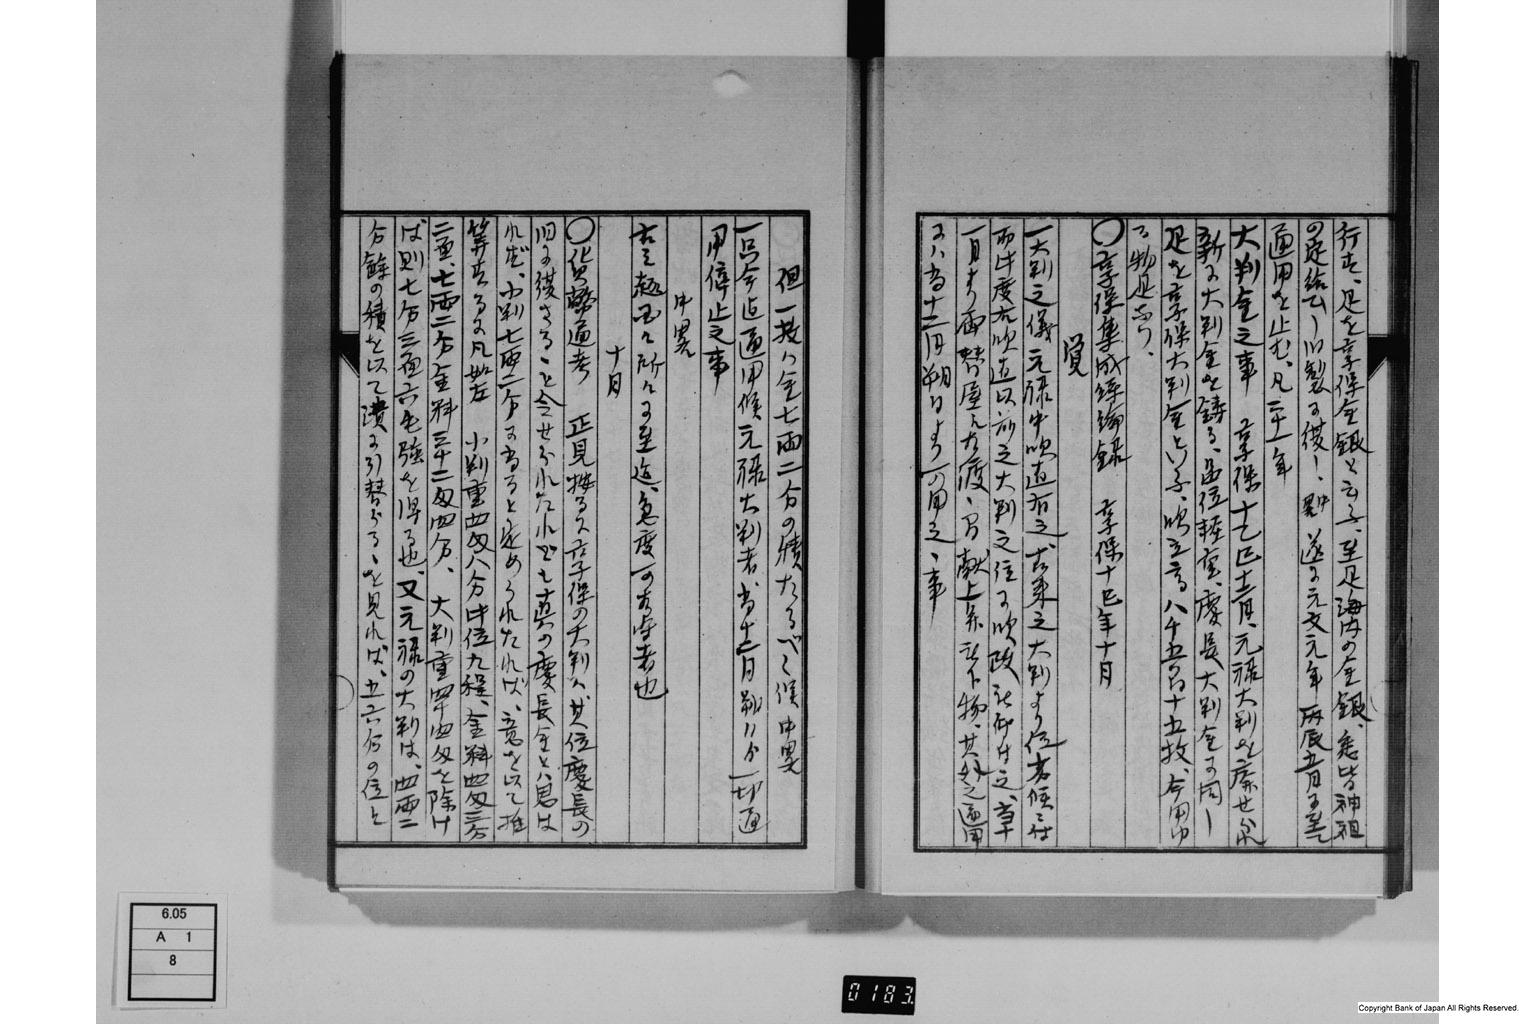 行せ、是を享保金銀と云ふ、至是海内の金銀、悉皆神祖
の定給ひし旧製に復し、遂に元文元年丙辰五月に至て
通用を止む、凡二十一年
大判金之事　享保十乙巳十二月、元禄大判を廃せられ
新に大判金を鋳る、品位軽重、慶長大判金に同し
是を享保大判金といふ、吹立高八千五百十五枚、今用ゆ
る物是なり、
〇享保集成絲綸録　享保十巳年十月
覚
一大判之儀元禄中吹直有之、古来之大判より位劣候ニ付
而此度右吹直以前之大判之位に吹改被仰付之、当十
一月より両替屋え相渡、献上并被下物、其外之通用
にハ当十二月朔日より可用之、事
但一枚ハ金七両二分の積たるべく候中略
一只今迄通用候元禄大判者、当十二月朔日より一切通
用停止之事
中略
右之趣国々所々に至迄、急度可相守者也
十月
〇貨幣通考　正見按るに享保の大判ハ其位慶長の
旧に復さるゝと令せられたれども真の慶長金とハ
れば、小判七両二分に当ると定められたれば、意を以て推
算するに凡如左　小判重四匁八分此位九程、金料四匁三分
二厘、七両二分金料三十二匁四分、大判重四十四匁を除け
ば則七分三厘六毛強を得る也、又元禄の大判は、四両二
分余の積を以て潰に引替らるゝを見れば、五六分の位と
6.05
A 1
8
0183.
Copyright Bank of Japan All Rights Reserved.